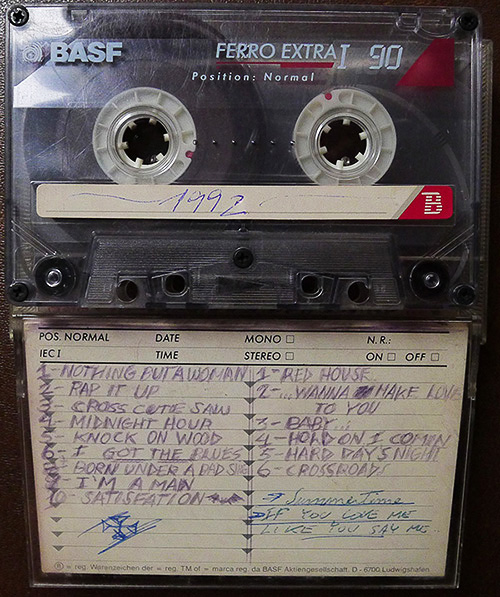 BASF
FERRO EXTRA I 90
Position: Normal
1992
B
POS. NORMAL DATE MONO N.R.:
IEC I TIME STEREO ON OFF
1- NOTHING BUT A WOMAN
2- RAP IT UP
3- CROSS CUTIE SAW
4- MIDNIGHT HOUR
5- KNOCK ON WOOD
6- I GOT THE BLUES
BORN UNDER A BAD SIGN
I'M A MAN
SATISFATION
1- RED HOUSE
2-...WANNA MAKE LOVE
TO YOU
3- BABY...
4- HOLD ON I COMIN
5- HARD DAY'S NIGHT
6- CROSSROADS
→ SummerTime
→ IF YOU LOVE ME
LIKE YOU SAY ME..
® = reg. Warenzeichen der = reg. TM of = marca reg. da BASF Aktiengesellschaft. D - 6700 Ludwigshafen